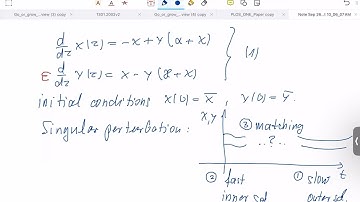 Go_or_grow_... view (3) copy
1301.2003v2
Go_or_grow_... view (4) copy
PLOS_ONE_Paper copy
Note Sep 26...
d/dz x(z) = -x + y (α + x)
(1)
ε d/dz y(z) = x - y (æ + x)
initial conditions x(0) = x̄ , y(0) = ȳ.
Singular perturbation:
x,y
③ matching
..?..
t
② fast
① slow
inner sol
outer sol.